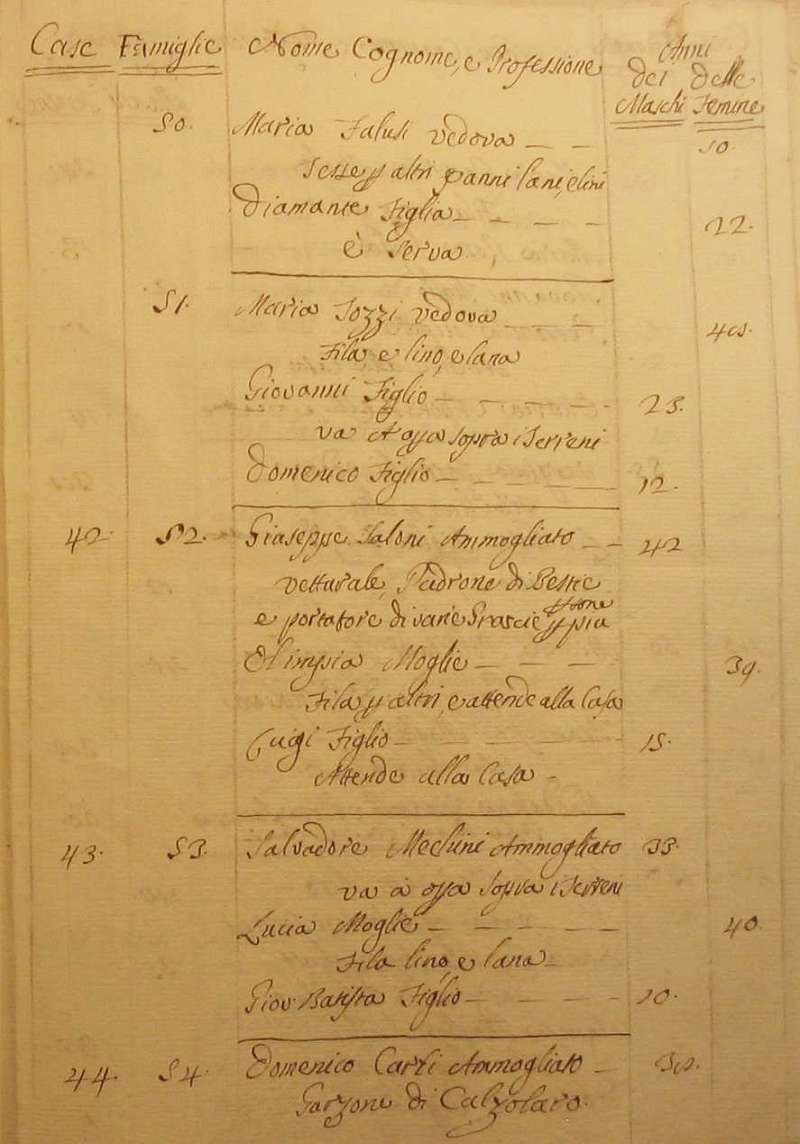 Case Famiglie Nome Cognome, e Professione Anni
dei delle
Maschi Femine
50. Maria Falusi vedova 50.
Tesse p altri panni lani, e lini
Diamante Figlia 22.
è Serva
51. Maria Tozzi vedova
Fila e lino, e lana
Giovanni Figlio 23.
va A opra sopra i Terreni
Domenico Figlio 12.
42. 52. Giuseppe Saloni Ammogliato 42
vetturale, Padrone di Bestie
e portatore di varie Grascie
Moglie 39.
Fila p altri, e attende alla Casa
Luigi Figlio 15.
Attende alla Casa
43. 53. Salvadore Mechini Ammogliato 33.
va a opra sopra i Terreni
Lucia Moglie 40
Fila lino e lana
Giov: Batista Figlio 10.
44. 54. Domenico Carli Ammogliato
Garzone di Calzolaro.